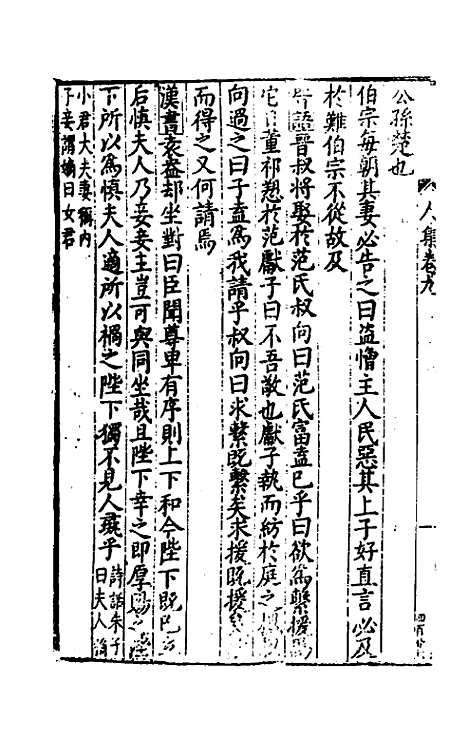 公孫楚也
伯宗每朝其妻必告之曰盗憎主人民惡其上子好直言必及
於難伯宗不從故及
語晉叔將娶於范氏叔向曰范氏富盍已乎曰欲為繫援焉
它日董祁愬於范獻子曰不吾敬也獻子執而紡於庭之槐
向過之曰子盍為我請乎叔向曰求繫既繫矣求援既援矣
而得之又何請焉
漢書袁盎却坐對曰臣聞尊卑有序則上下和今陛下既已立
后慎夫人乃妾妾主豈可與同坐哉且陛下幸之即厚賜之陛
下所以為慎夫人適所以禍之陛下獨不見人彘乎 詩話朱子 曰夫人
小君大夫妻稱內
子妾謂嫡曰女君
人集卷九